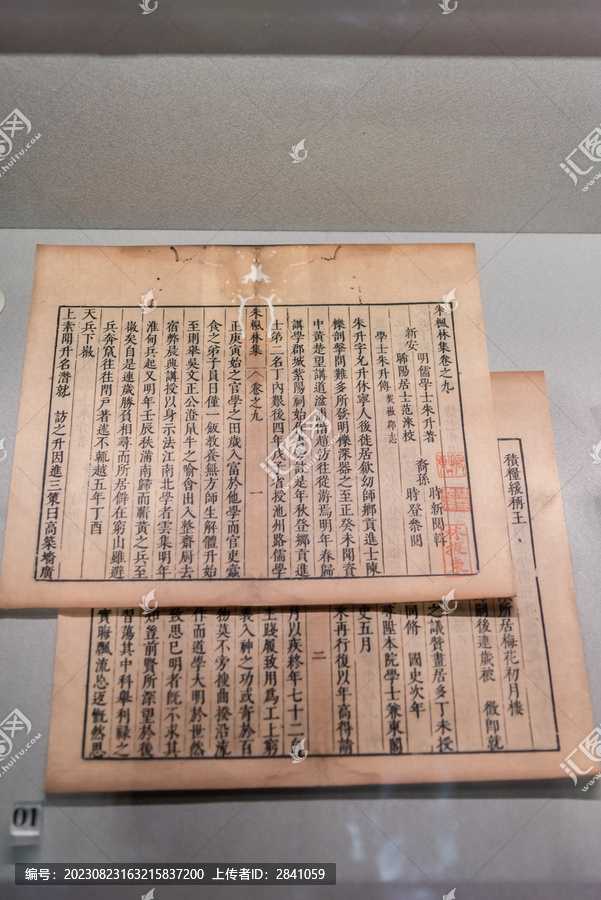 朱楓林集卷之九
明儒學士朱升著
新安
驕陽居士范淶校
裔孫
時新閱
時登叅閱
學士朱升傳
朱升字允升休寧人後徙居歙幼師鄉貢進士陳
櫟剖擊問難多所發明櫟深器之至正癸未聞資
中黃楚望講道湓浦
趙汸往從游焉明年春歸
講學郡城紫陽祠始作
註是年秋登鄉貢進
士第二名丁內艱後四年
授池州路儒學
朱楓林集
卷之九
一
正庚寅始之官學之田歲入富於他學而官吏蠹
食之弟子員日僅一飯教養無方師生解體升始
至則舉吳文正公澄鼠牛之喻會出入整齋厨去
宿弊晨典講授以身示法江南北學者雲集明年
淮甸兵起又明年壬辰秩滿南歸而蘄黃之兵至
歙矣自是連歲勝負相尋而所居僻在窮山雖避
兵奔竄往往閉戶著述不輟越五年丁酉
天兵下歙
上素聞升名潛就
訪之升因進三策曰高築墻廣
積糧緩稱王
所居梅花初月樓
嗣後連歲被
徵即就
之議贊畫居多丁未授
同脩
國史次年
尊陞本院學士兼東閣
史五月
未再行復以年高得請
二
月以疾終年七十二
上踐履致用爲工上窮
義入神之功或寄於百
物莫不旁搜曲揆沿流
作而道學大明於世然
致思已明者既不求其
知答前賢所深望於後
習蕩其中科舉利祿之
實晦飄流忘返慨然思
01
编号: 20230823163215837200 上传者ID: 2841059
汇图网
www.huitu.com